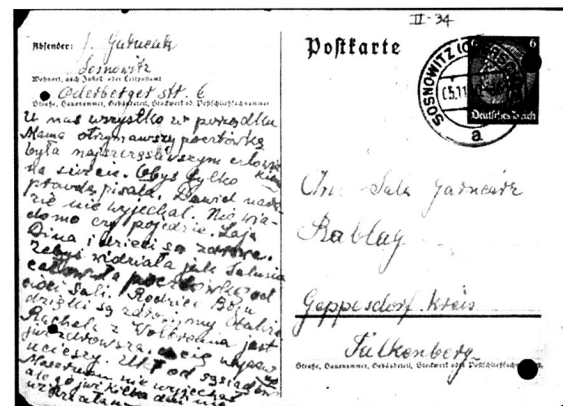 II-34
Postkarte
Absender: J. Garncarz
Sosnowitz
Wohnort, auch Zustell- oder Leitpostamt
Oderberger str. 6
Straße, Hausnummer, Gebäudeteil, Stockwerk od. Postschließfachnummer
U nas wszystko w porządku
Mama otrzymawszy pocztówkę
była najszczęśliwszym człowie
kiem
na świecie. Obyś tylko
prawdę pisała. Dawid na ra
zie nie wyjechał. Nie wia-
domo czy pojedzie. Laja
Dina i dzieci są zdrowe.
Żebyś widziała jak Salusia
całowała pocztówkę od
cioci Sali. Rodzice Bogu
dzięki są zdrowi, my
Rachela z Wolbromia jest
już zdrowsza.
ucieszy. od sąsiadów
nie wyjechał
ale go już kilka dni nie
SOSNOWITZ
a
6
Deutsches Reich
An Sala Garncarz
Geppersdorf. Kreis
Falkenberg
Straße, Hausnummer, Gebäudeteil, Stockwerk od. Postschließfachnummer